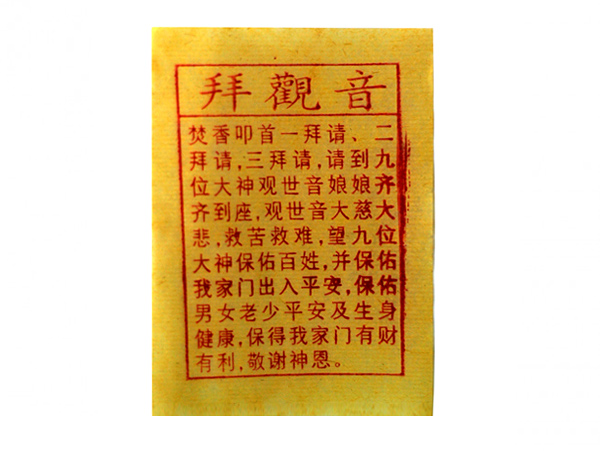 拜觀音
焚香叩首一拜请、二
拜请,三拜请,请到九
位大神观世音娘娘齐
齐到座,观世音大慈大
悲,救苦救难,望九位
大神保佑百姓,并保佑
我家门出入平安,保佑
男女老少平安及生身
健康,保得我家门有财
有利,敬谢神恩。